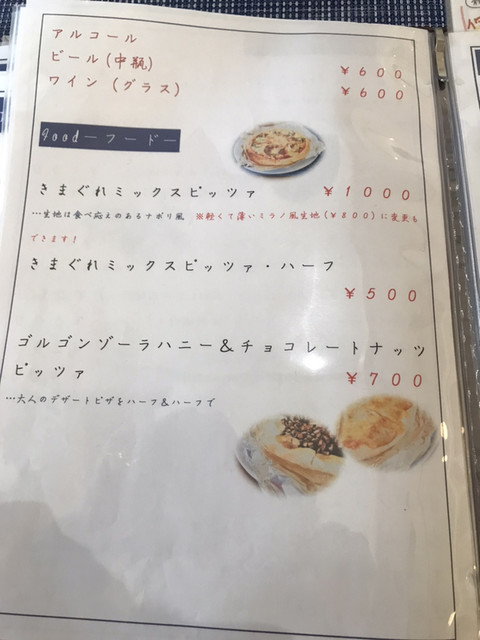 アルコール
ビール(中瓶) ¥600
ワイン (グラス) ¥600
goodーフードー
きまぐれミックスピッツァ ¥1000
…生地は食べ応えのあるナポリ風 ※軽くて薄いミラノ風生地(¥800)に変更も
できます!
きまぐれミックスピッツァ・ハーフ
¥500
ゴルゴンゾーラハニー&チョコレートナッツ
ピッツァ ¥700
…大人のデザートピザをハーフ&ハーフで